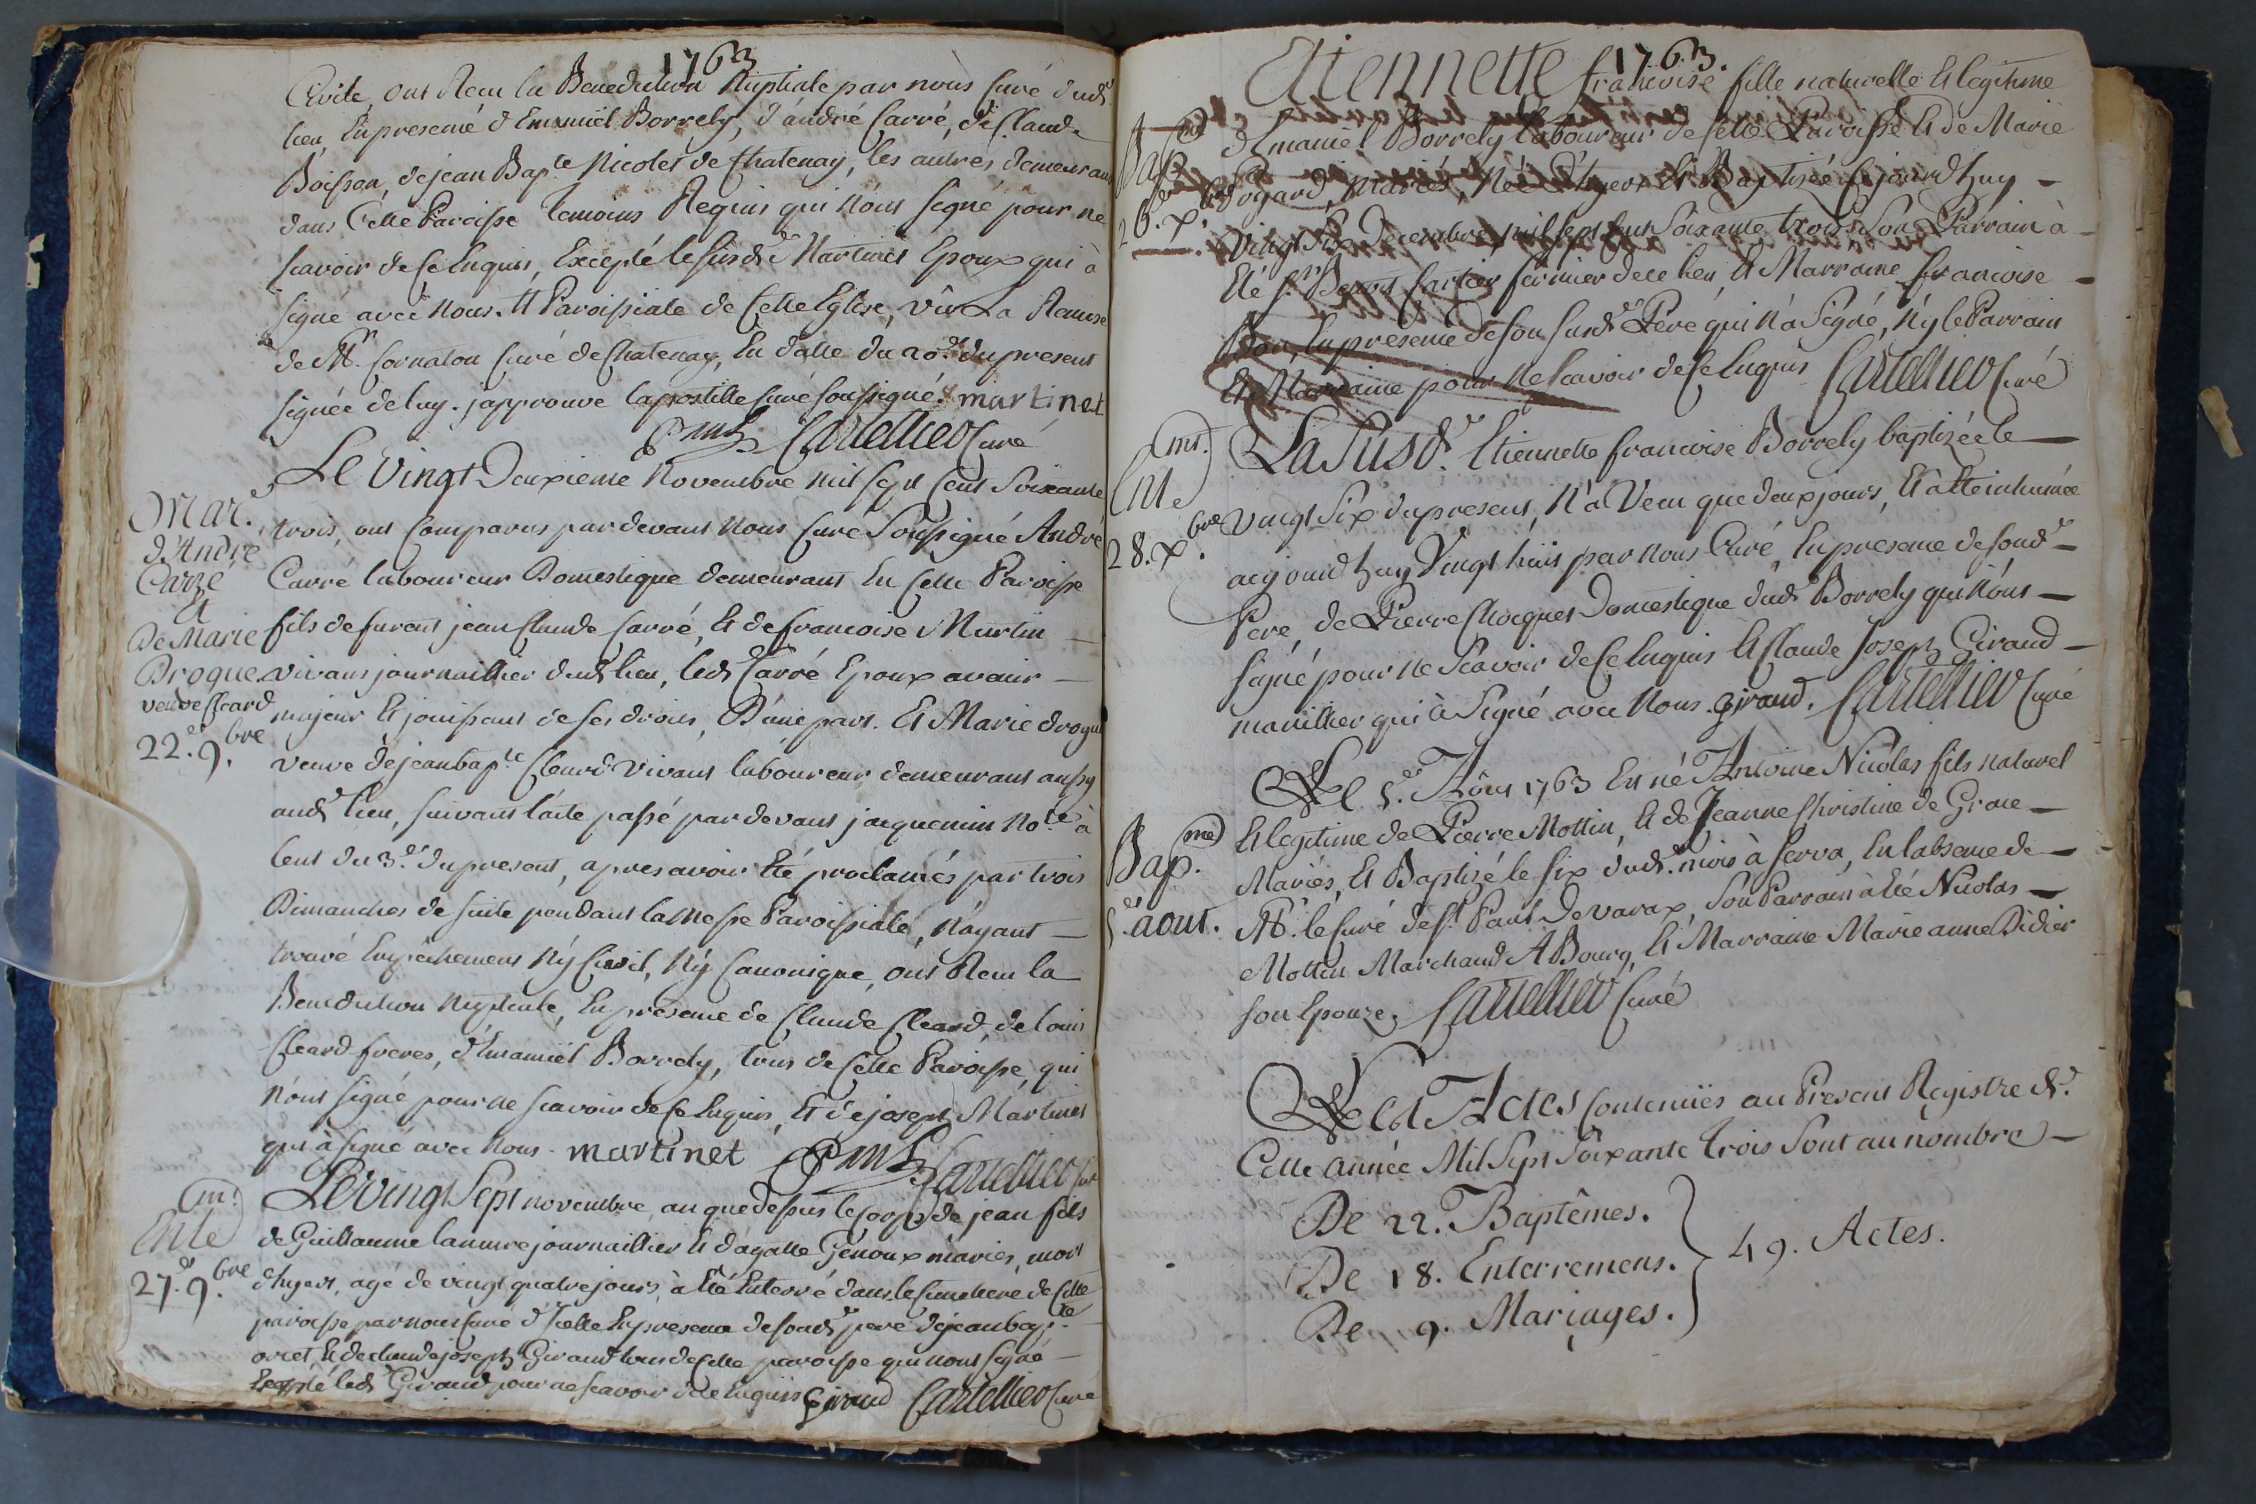 1763
Civile, ont Recu la Benediction Nuptiale par nous Curé dud.
lieu, En presence d'Emanuël Borrely, d'andré Carré, de Claude
Boisson, de jean Bapte Nicolet de Chatenay, les autres demeurans
dans Cette Paroisse Temoins Requis qui n'ont signé pour ne
scavoir de ce Enquis, Excepté le susdt Martinet Epoux qui à
signé avec nous. tt Paroissiale de Cette Eglise, vû La Remise
de Mr Cornaton Curé de Chatenay, En datte du 20e du present
signée de luy. j'approuve l'apostille Curé soussigné. martinet
Cartellier Curé
Mar.
d'André
Carré
Et
De Marie
Drogue
veuve Cleard
22e 9bre
Le Vingt Deuxieme Novembre mil sept Cent Soixante
trois, ont Comparus pardevant Nous Curé Soussigné André
Carré laboureur Domestique demeurant En Cette Paroisse
fils de furent jean Claude Carré, Et de francoise Martin
vivans journaillier dud. lieu, led. Carré Epoux avenir
majeur Et jouissant de ses droits, D'une part. Et Marie drogue
veuve de jean bapte Cleard vivant laboureur demeurant aussy
aud. lieu, suivant l'acte passé pardevant jacquemin Notre à
Cent du 3e du present, apres avoir Eté proclamés par trois
Dimanches de suite pendant la Messe Paroissiale, N'ayant
trouvé Empêchement Ny Civil, Ny Canonique, ont Recu la
Benediction Nuptiale, En presence de Claude Cleard, de Louis
Cleard freres, d'Emanuël Borrely, tous de Cette Paroisse, qui
n'ont signé pour ne scavoir de ce Enquis, Et de joseph Martinet
qui à signé avec Nous. martinet Cartellier Curé
Entemt
27e 9bre
Le vingt Sept novembre, an que dessus le Corps de jean fils
de Guillaume journaillier Et d'agatte Genoux mariés, mort
d'hyert, agé de vingt quatre jours, à Eté Enterré dans le Cimetiere de Cette
paroisse par nous Curé d'Icelle En presence de soud. pere de jean bapte
oret Et de claude joseph Giraud tous de Cette paroisse qui n'ont signé
Excepté led. Giraud pour ne scavoir de ce Enquis Giraud Cartellier Curé
1763.
Etiennette francoise fille naturelle Et legitime
Bapme
26e Xbre
d'Emaniel Borrely laboureur de Cette Paroisse Et de Marie
Pogard, Mariés, Née d'hyert Et Baptisée Cejourd'huy
vingt Six Decembre, mil sept Cent Soixante trois Son Parrain à
Eté Sr Benoit Cartier fermier de ce lieu, Et Marraine francoise
En presence de son susdt Pere qui n'à Signé, Ny le Parrain
Et Marraine pour ne scavoir de ce Enquis Cartellier Curé
Entemt
28. Xbre
La Susde Etiennette francoise Borrely baptizée le
vingt Six du present, N'à Vecu que deux jours, Et à Eté inhumée
aujourd'huy Vingt huit par nous Curé, En presence de soud.
Pere, de Pierre Chocques Domestique dud. Borrely qui n'ont
signé pour ne Scavoir de ce Enquis Et Claude Joseph Giraud
manillier qui à Signé avec Nous. Giraud. Cartellier Curé
Bapme
5e aout.
Le 5e Août 1763 Est né Antoine Nicolas fils naturel
Et legitime de Pierre Mottin, Et de Jeanne Christine de Grace
Mariés, Et Baptisé le six dud. mois à servo, En l'absence de
Mr le Curé de St Paul De varax, Son Parrain à Eté Nicolas
Mottin Marchand A Bourg, Et Marraine Marie anne Didier
son Epouze. Cartellier Curé
Les Actes Contenües au Present Registre de
Cette année Mil Sept Soixante trois Sont au nombre
De 22. Baptêmes.
De 18. Enterremens.
De 9. Mariages.
49. Actes.